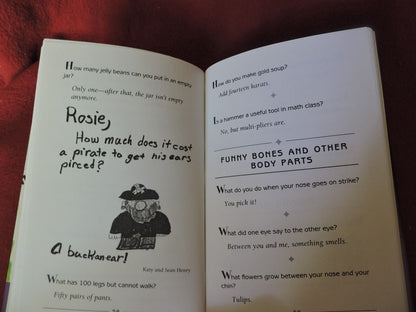 How many jelly beans can you put in an empty
jar?
Only one—after that, the jar isn't empty
anymore.
Rosie,
How much does it cost
a pirate to get his ears
pirced?
A buckanear!
Katy and Sean Henry
What has 100 legs but cannot walk?
Fifty pairs of pants.
How do you make gold soup?
Add fourteen karats.
Is a hammer a useful tool in math class?
No, but multi-pliers are.
FUNNY BONES AND OTHER
BODY PARTS
What do you do when your nose goes on strike?
You pick it!
What did one eye say to the other eye?
Between you and me, something smells.
What flowers grow between your nose and your
chin?
Tulips.